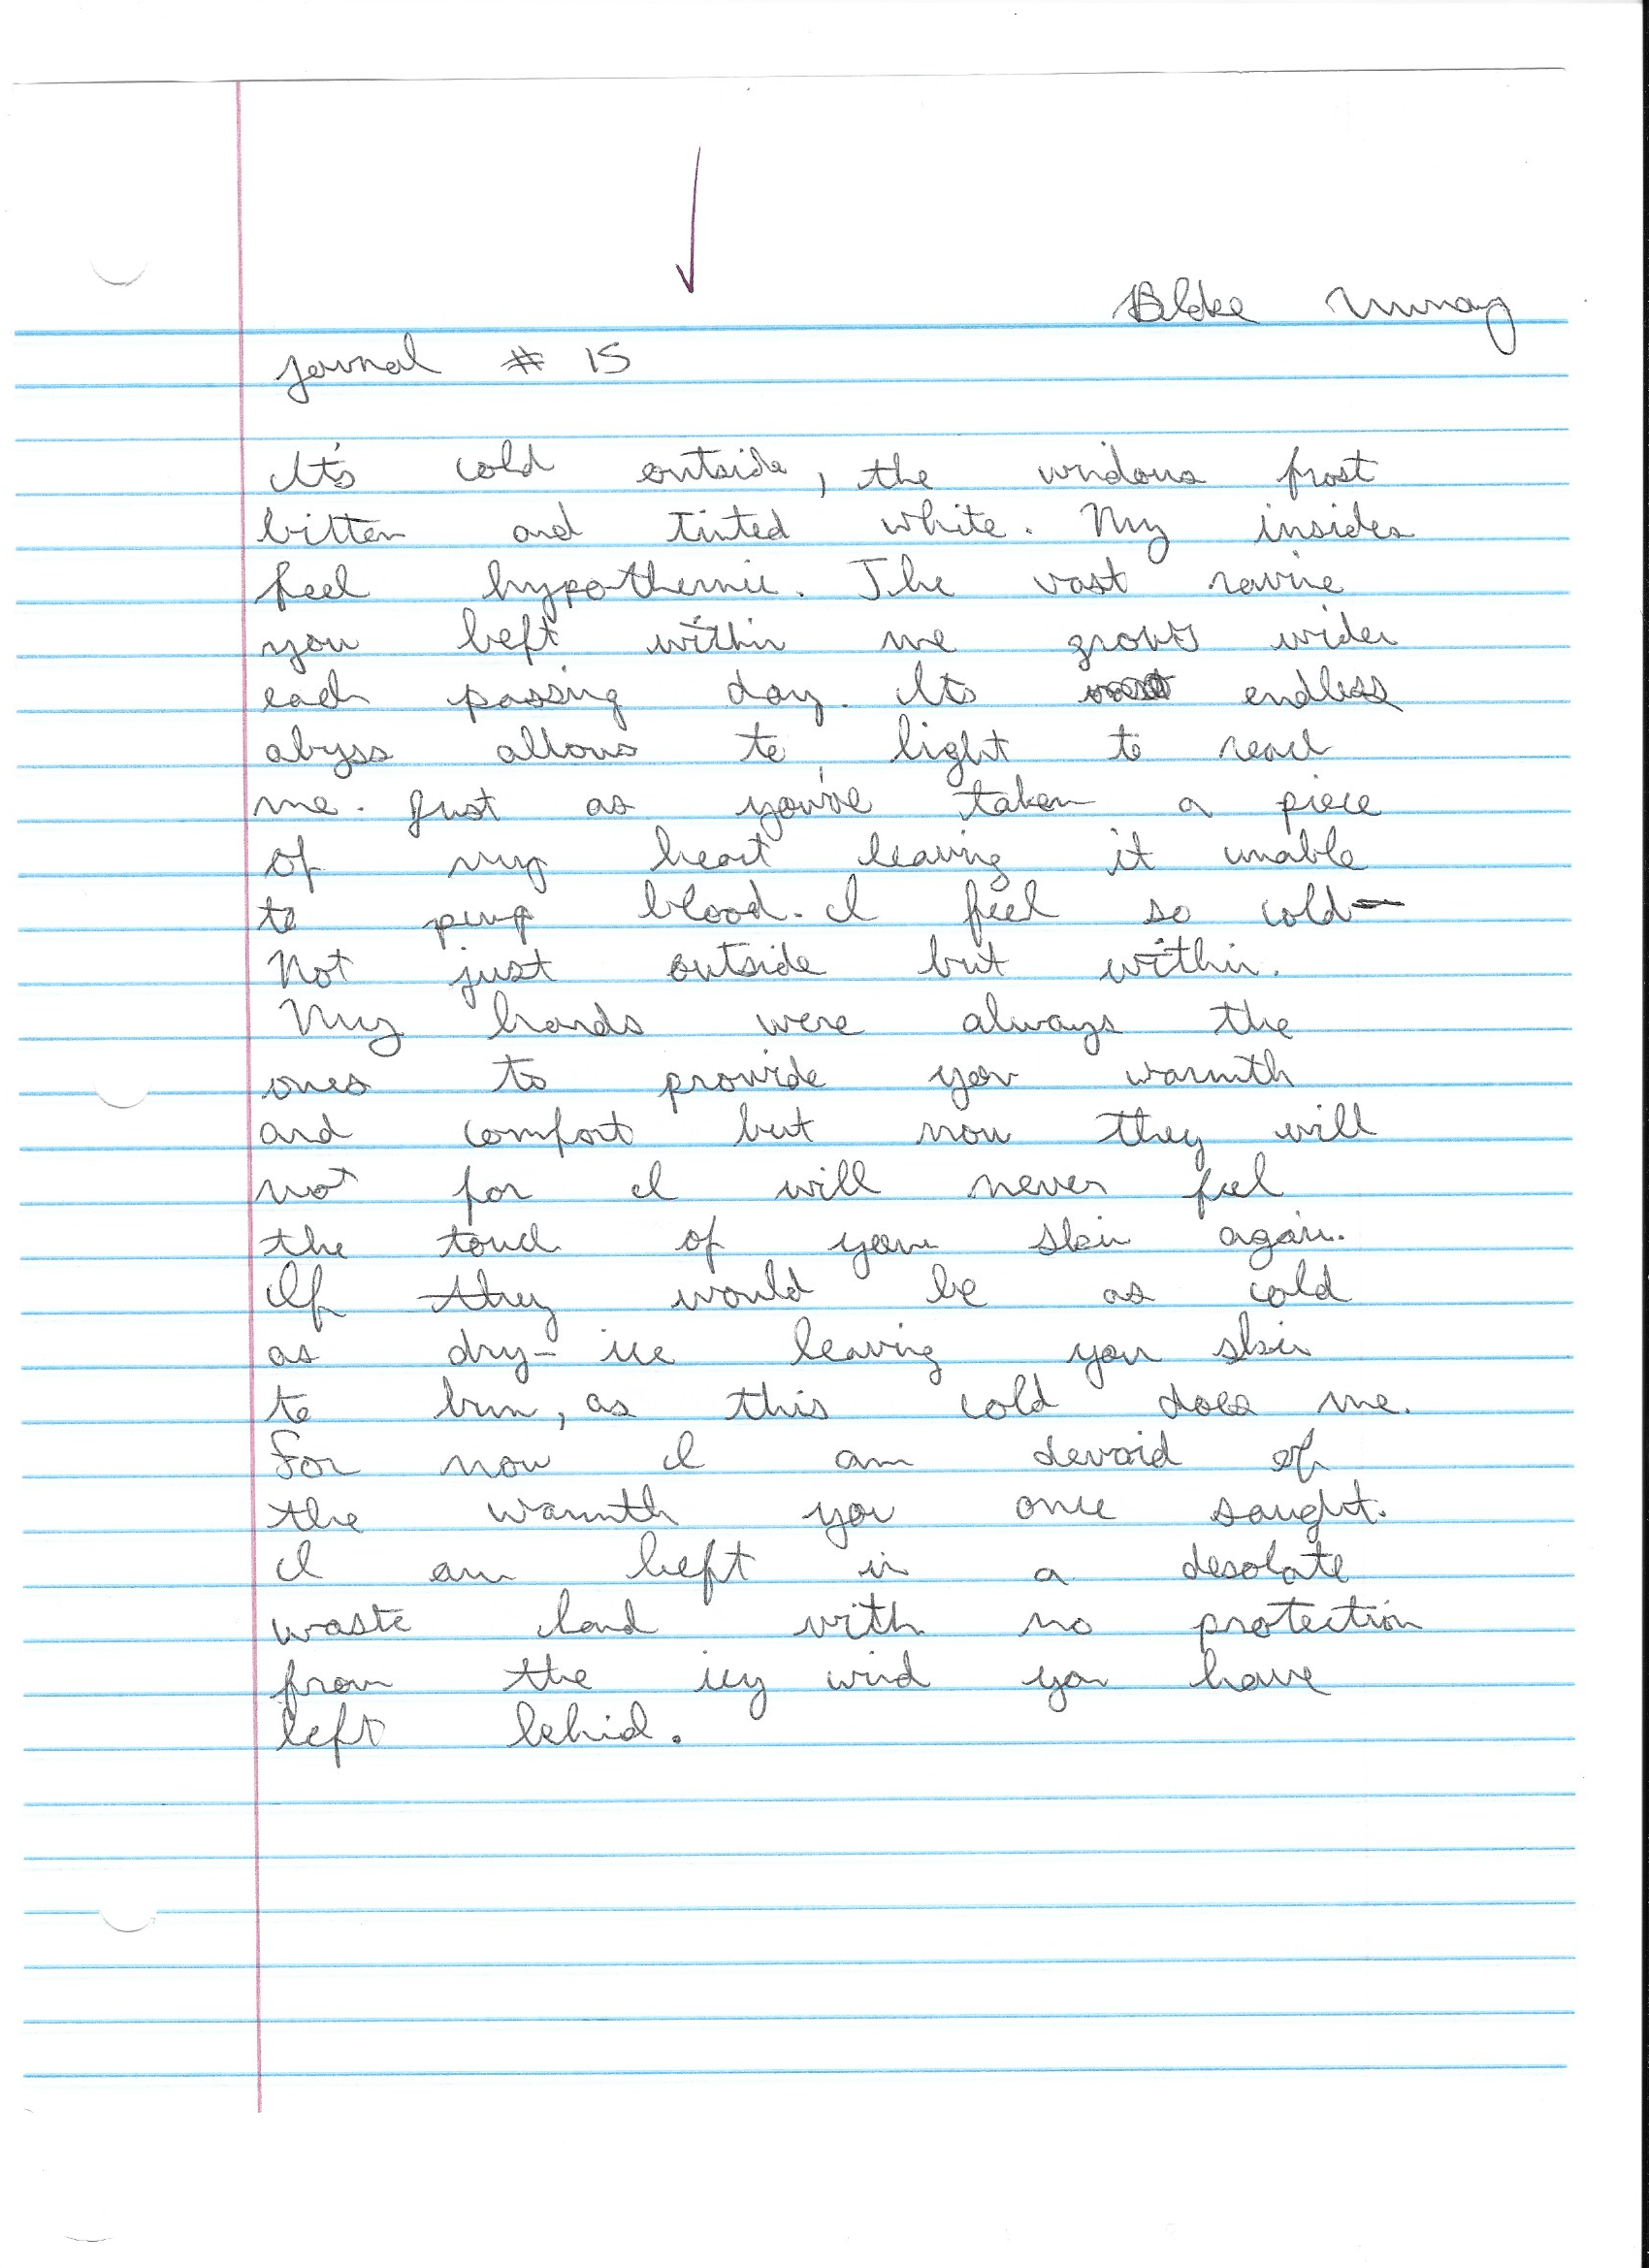 Blake Murray
Journal # 15
It's cold outside, the windows frost
bitten and tinted white. My insides
feel hypothermic. The vast ravine
you left within me grows wider
each passing day. Its endless
abyss allows to light to reach
me. Just as you've taken a piece
of my heart leaving it unable
to pump blood. I feel so cold—
Not just outside but within.
My hands were always the
ones to provide you warmth
and comfort but now they will
not for I will never feel
the touch of your skin again.
If they would be as cold
as dry-ice leaving your skin
to burn, as this cold does me.
For now I am devoid of
the warmth you once sought.
I am left in a desolate
waste land with no protection
from the icy wind you have
left behind.